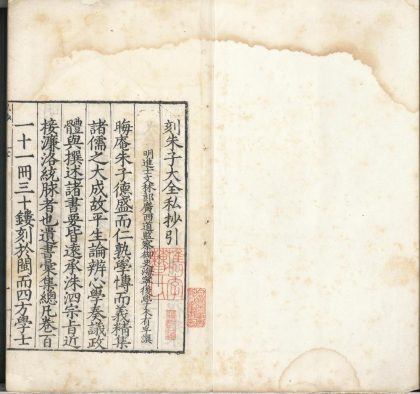 刻朱子大全私抄引
明進士文林郎廣西道監察御史海鹽後學朱有孚撰
晦庵朱子德盛而仁孰學博而義精集
諸儒之大成故平生論辨心學奏議政
體與撰述諸書要皆遠承洙泗宗旨近
接濂洛統脉者也遺書彙集總凡卷一百
一十一冊三十鏤刻於閩而四方學士